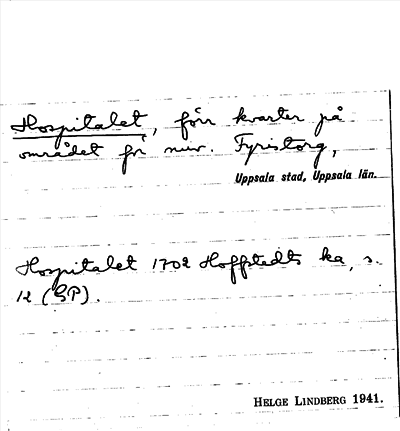 Hospitalet, förr kvarter på
området för nuv. Fyristorg,
Uppsala stad, Uppsala län.
Hospitalet 1702 Hoffstedts ka, s.
12 (GP).
HELGE LINDBERG 1941.